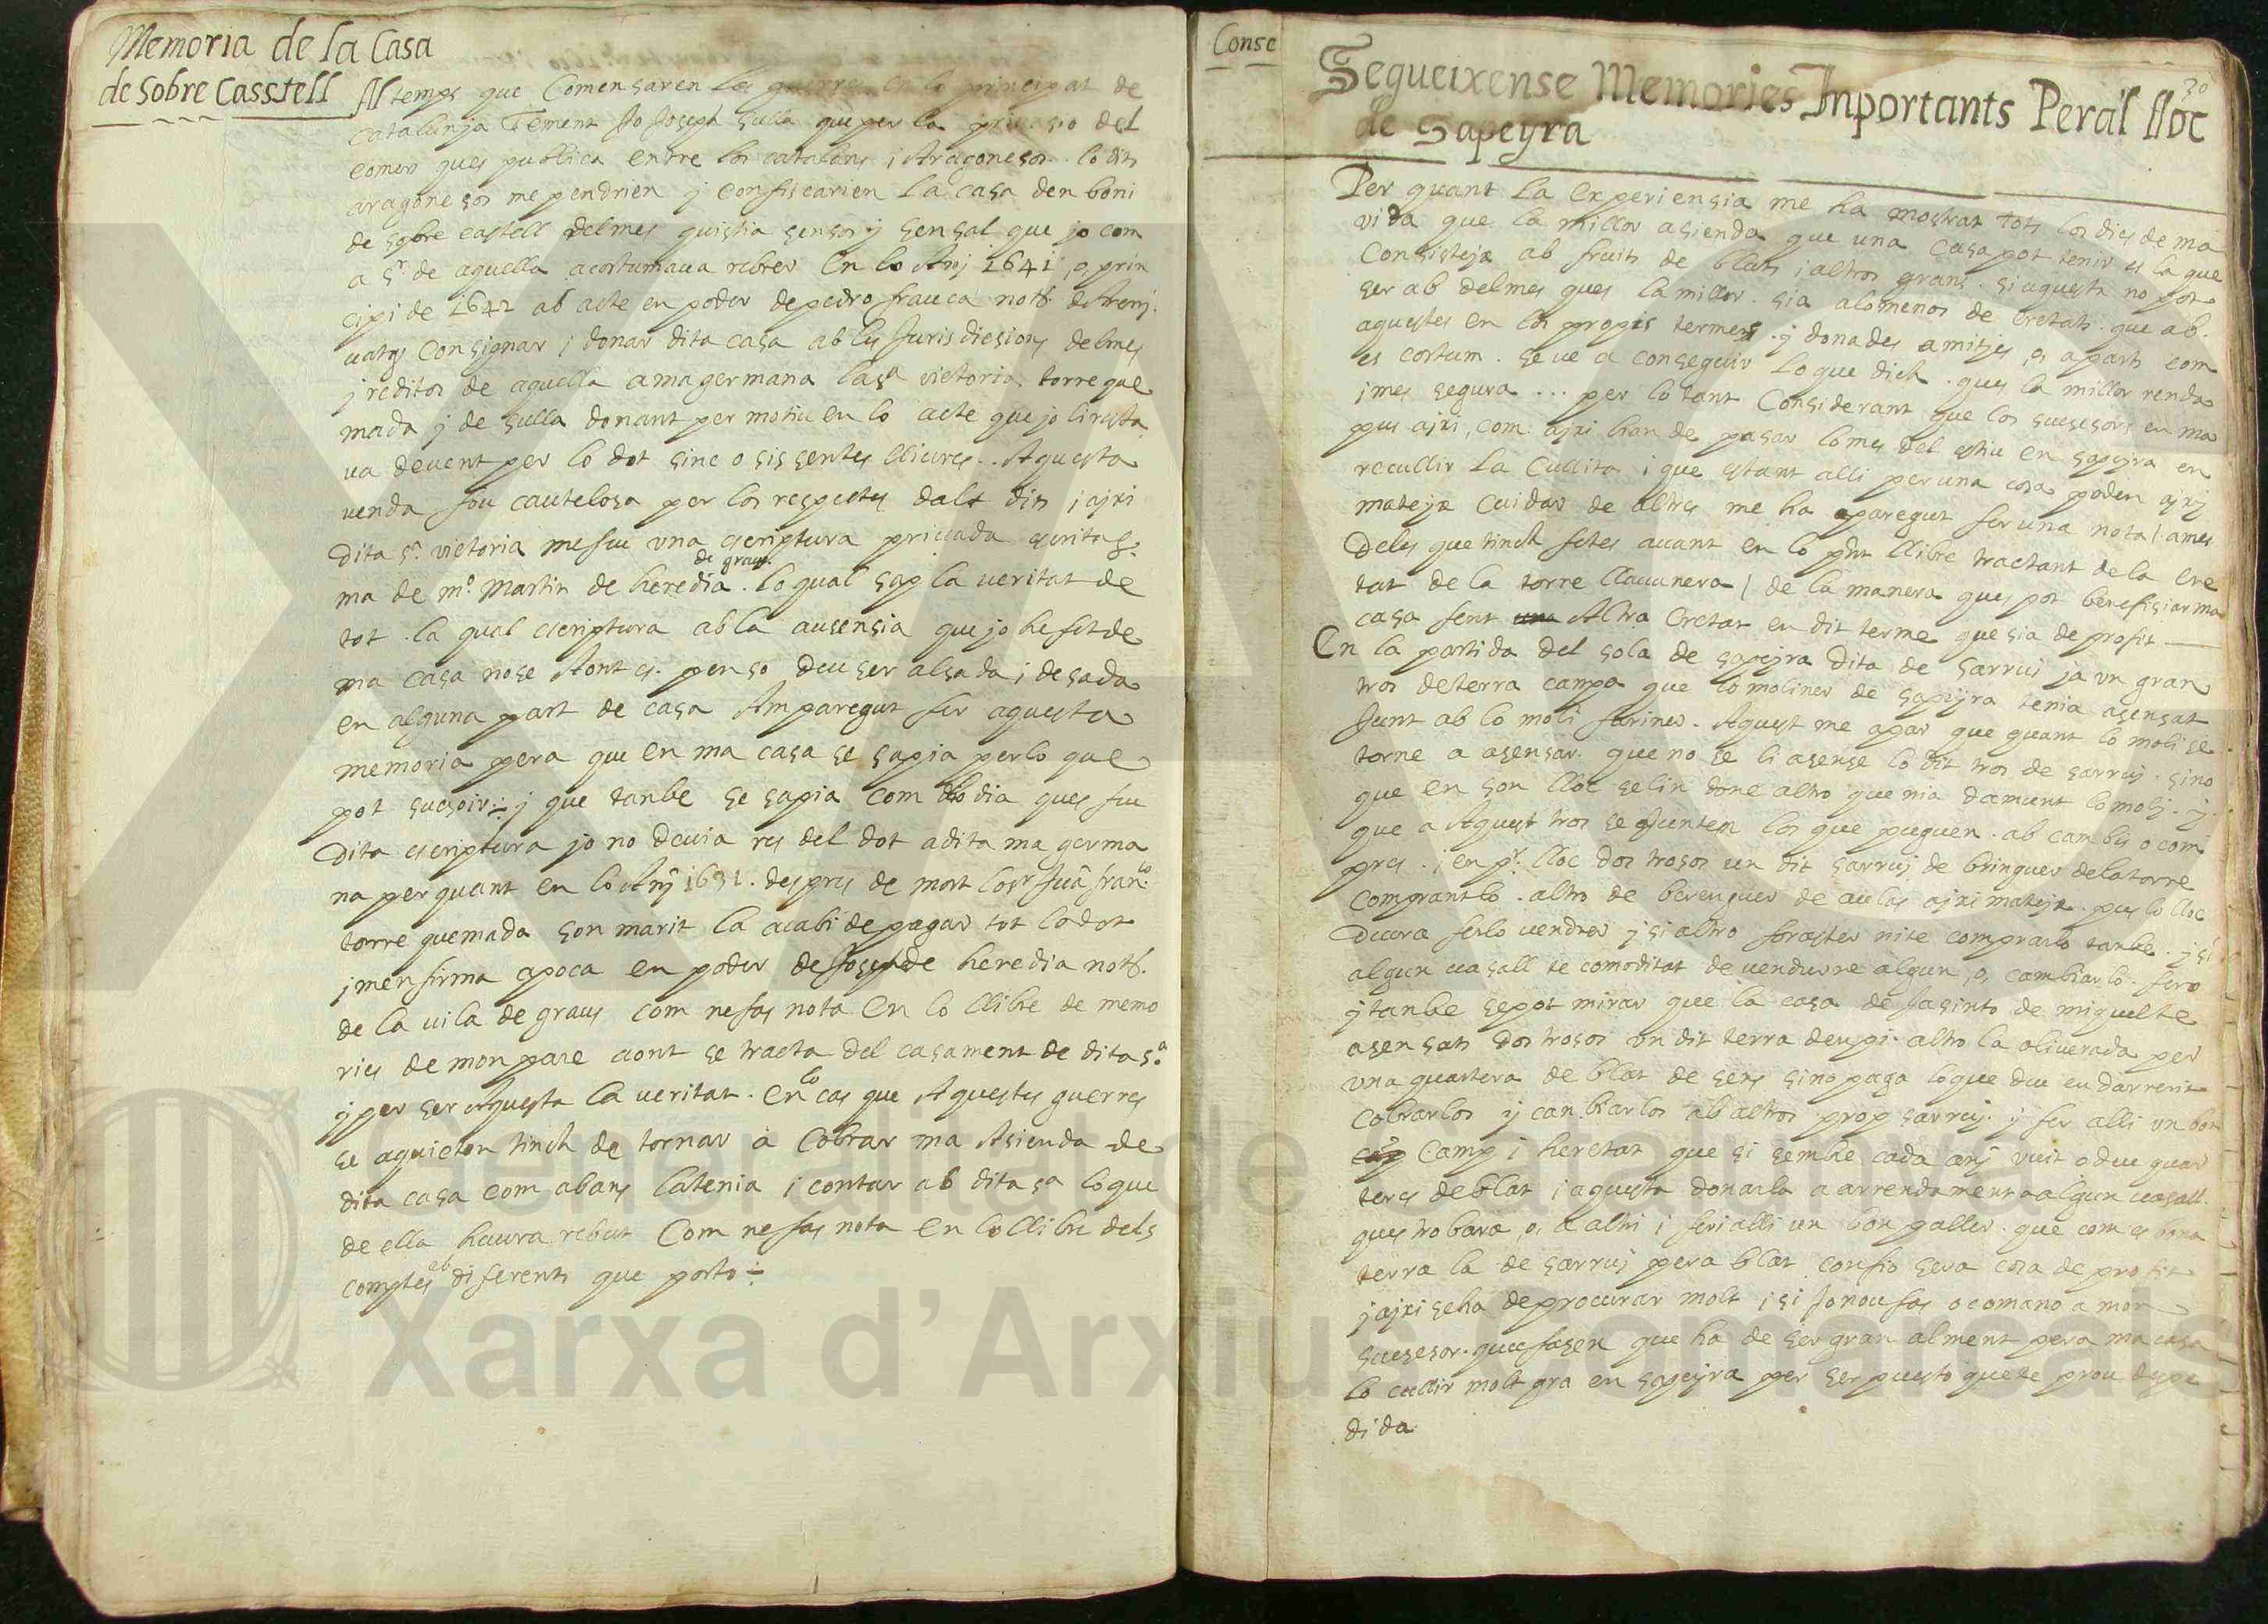 Memoria de la Casa
de sobre Casstell
Al temps que Comensaren los guerres en lo principat de
Catalunja Tement Jo Joseph Sulla que per la privasio del
comers ques publica entre los catalans i Aragonesos. lo dits
aragonesos me pendrien y confiscarien la casa den boni
de sobre castell delmes quistia sensos y sensal que jo com
a Sr. de aquella acostumava rebrer en lo Anj 1641 o, prin
cipi de 1642 ab acte en poder de pedro frauca nott. de Areny.
vatg Consignar i donar dita casa ab les Jurisdicsions delmes
j reditos de aquella a ma germana la sa victoria torre que
mada y de sulla donant per motiu en lo acte que jo li resta
va devent per lo dot sinc o sis sentes lliures. . Aquesta
venda fou cautelosa per los respectes dalt dits i ajxi
dita sa. victoria me feu una escriptura privada escrita
de graus.
ma de mo. Martin de heredia. lo qual sap la veritat de
tot. la qual escriptura ab la ausensia que jo he fet de
ma casa no se Aont es. penso deu ser alsada i desada
en alguna part de casa Am paregut fer aquesta
memoria pera que en ma casa se sapia per lo que
pot susoir÷ y que tanbe se sapia com lo dia ques feu
dita escriptura jo no devia res del dot a dita ma germa
na per quant en lo Anj 1631. despres de mort lo sr Juā franco
torre quemada son marit la acabi de pagar tot lo dot
j men firma apoca en poder de Joseph de heredia nott.
de la vila de graus com ne fas nota en lo llibre de memo
ries de mon pare aont se tracta del casament de dita sa
y per ser Aquesta la veritat. en lo cas que Aquestes guerres
se aquieton tinch de tornar a Cobrar ma Asienda de
dita casa com abans la tenia i contar ab dita sa lo que
de ella haura rebut Com ne fas nota en lo llibre dels
comptes ab diferents que porto÷
Conse
20
Segueixense Memories Inportants Pera'l lloc
de Sapeyra
Per quant la experiensia me ha mostrat tots los dies de ma
vida que la millor asienda que una casa pot tenir es la que
Consisteje ab fruits de blats i altros grans. si aquesta no pot
ser ab delmes ques la millor. sia alomenos de eretats. que ab.
aquestes en los propis termens. y donades a mitjes, o, a parts com
es costum. se ve a conseguir lo que dich. ques la millor renda
i mes segura ... per lo tant Considerant que los susesors en ma
pus ajxi, com ajxi han de pasar lo mes del estiu en sapeyra en
recullir la Cullita i que estant alli per una cosa poden ajxi
mateje Cuidar de altres me ha aparegut fer una nota / ames
deles que tinch fetes avant en lo pñt llibre tractant de la ere
tat de la torre llavanera / de la manera ques pot benefisiar ma
casa fent Altra eretat en dit terme que sia de profit
En la partida del sola de sapeyra dita de Sarruj ja un gran
tros de terra campa que lo moliner de sapeyra tenia asensat
Junt ab lo moli fariner. Aquest me apar que quant lo moli se
torne a asensar. que no se li asense lo dit tros de sarruj. sino
que en son lloc selin done altro que nia damunt lo molj. y.
que a Aquest tros se Junten los que puguen. ab cambis o com
pres. i en pr. lloc dos trosos un dit sarruj de bringuer de la torre
comprantlo. altro de berenguer de aulas ajxi mateje. pus lo lloc
deura ferlo vendrer y si altro foraster nite comprarlo tanbe. y si
algun vasall te comoditat de vendrerne algun, o, cambiarlo. fero
y tanbe se pot mirar que la casa de Jasinto de miguel te
asensats dos trosos un dit terra den pi. altro la oliverada per
una quartera de blat de sens sino paga lo que deu en darrerit
Cobrarlos y canbiarlos ab altros prop sarruj. y fer alli un bon
Camp i heretat que si sembre cada anj vuit o deu quar
teres de blat i aquesta donarla a arrendament a algun vasall.
ques trobara, o, a altri i feri alli un bon paller. que com es bona
terra la de sarruj pera blat confio sera cosa de profit
j ajxi se ha de procurar molt i si Jo nou fas o comano a mon
susesor. queu fasen que ha de ser gran alment pera ma casa
lo cullir molt gra en sapeyra per ser puesto que te prou despe
dida